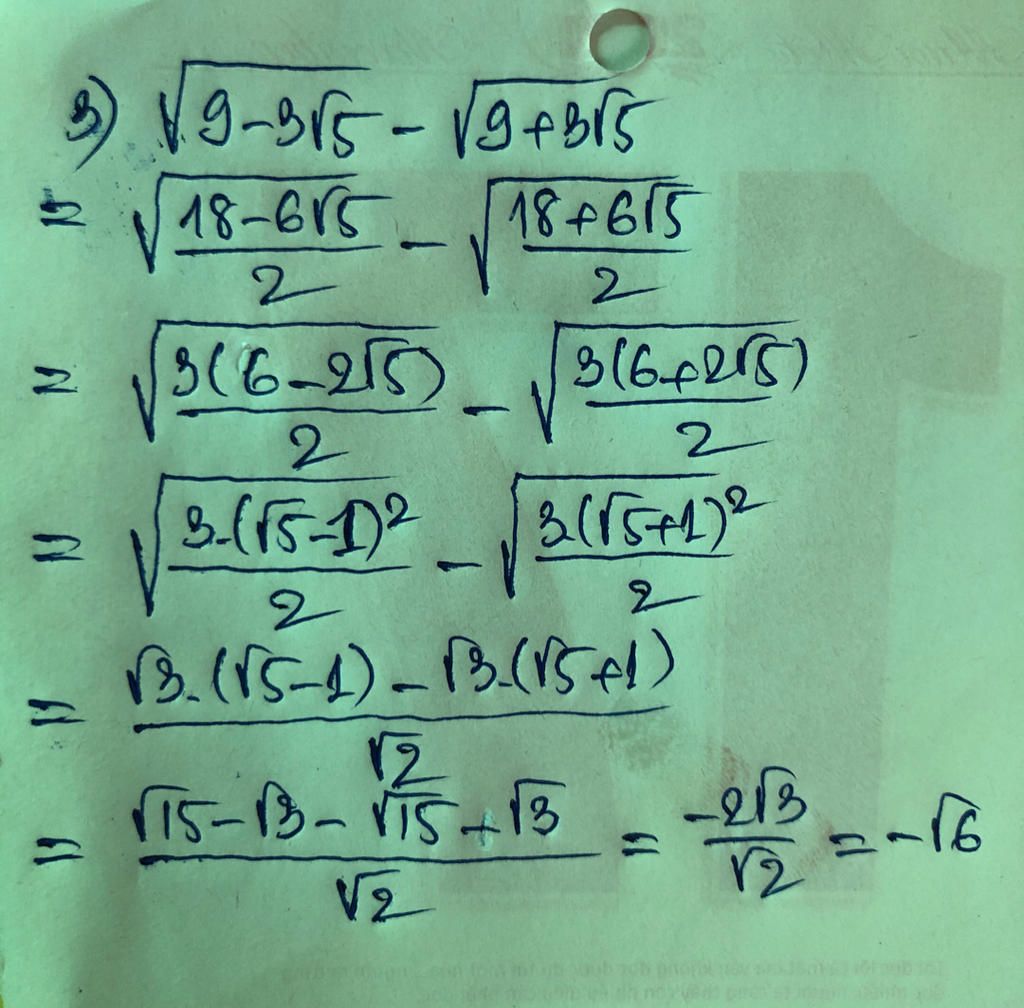 3) √(9-3√5) - √(9+3√5)
= √((18-6√5)/2) - √((18+6√5)/2)
= √((3(6-2√5))/2) - √((3(6+2√5))/2)
= √((3.(√5-1)²)/2) - √((3.(√5+1)²)/2)
= (√3.(√5-1) - √3.(√5+1))/√2
= (√15-√3-√15+√3)/√2 = (-2√3)/√2 = -√6